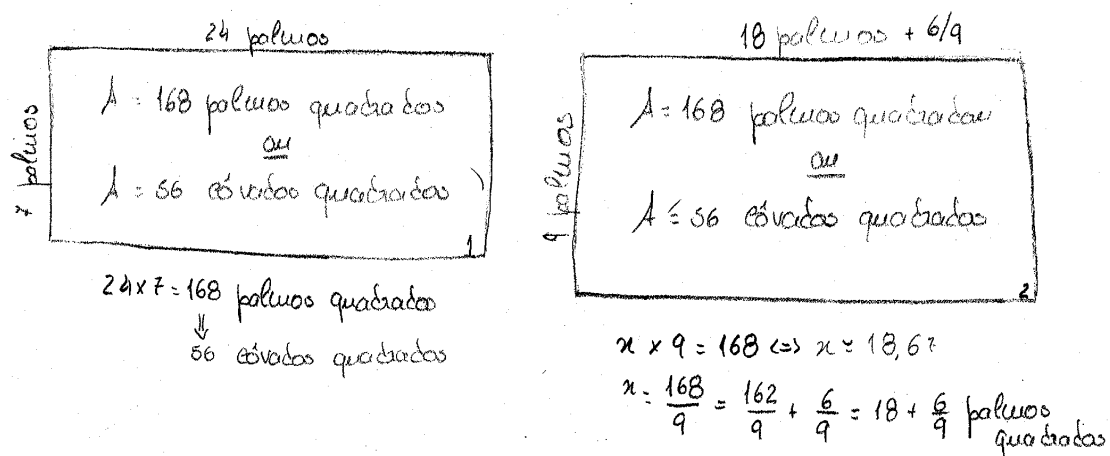 24 palmos
7 palmos
A = 168 palmos quadrados
ou
A = 56 côvados quadrados
1
24 x 7 = 168 palmos quadrados
⇓
56 côvados quadrados
18 palmos + 6/9
9 palmos
A = 168 palmos quadrados
ou
A = 56 côvados quadrados
2
x × 9 = 168 <=> x ≃ 18,67
x = 168/9 = 162/9 + 6/9 = 18 + 6/9 palmos
quadrados